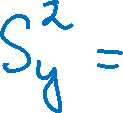 S_y^2 =